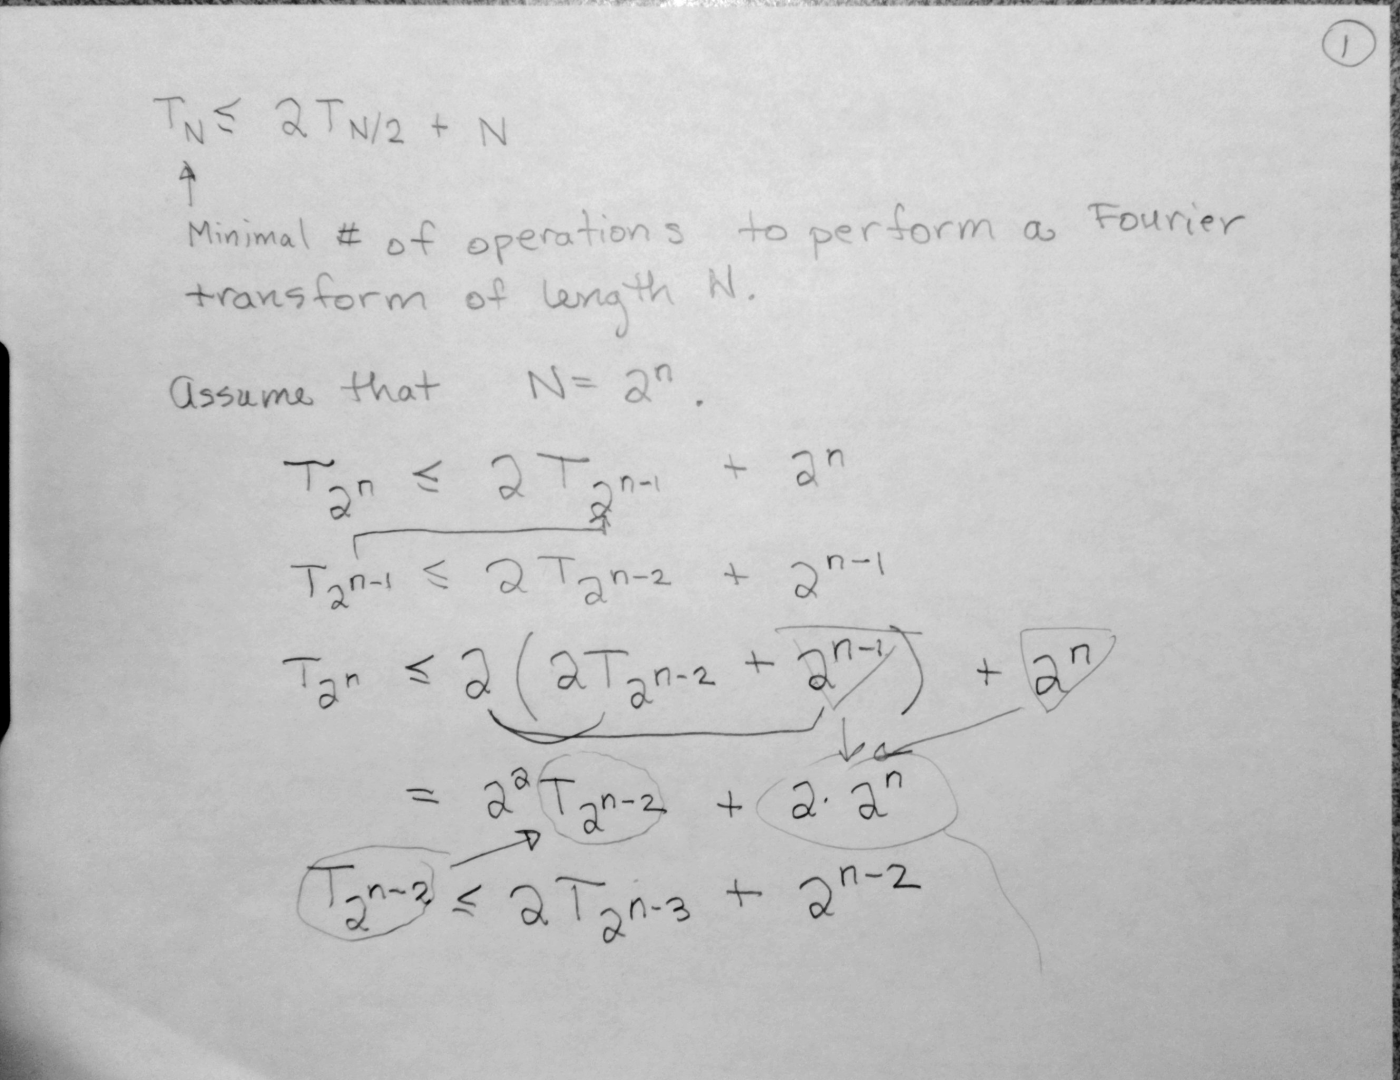 ①
T_N ≤ 2 T_{N/2} + N
↑
Minimal # of operations to perform a Fourier
transform of length N.
Assume that N = 2^n.
T_{2^n} ≤ 2 T_{2^{n-1}} + 2^n
T_{2^{n-1}} ≤ 2 T_{2^{n-2}} + 2^{n-1}
T_{2^n} ≤ 2 ( 2 T_{2^{n-2}} + 2^{n-1} ) + 2^n
= 2^2 T_{2^{n-2}} + 2 · 2^n
T_{2^{n-2}} ≤ 2 T_{2^{n-3}} + 2^{n-2}